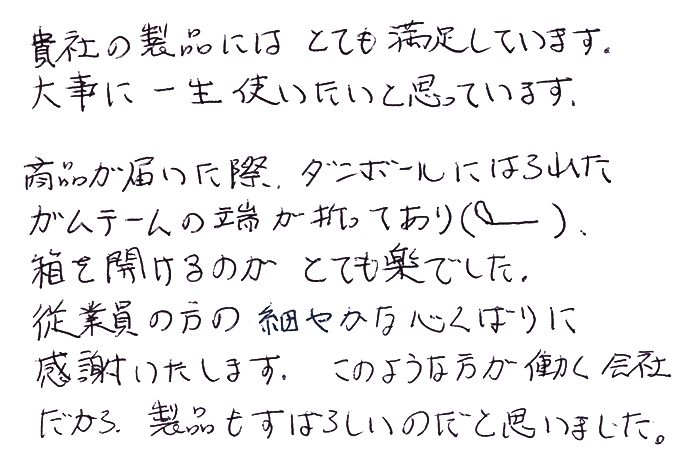 貴社の製品には とても満足しています.
大事に一生使いたいと思っています.
商品が届いた際、ダンボールにはられた
ガムテームの端が折ってあり( )、
箱を開けるのが とても楽でした.
従業員の方の 細やかな心くばりに
感謝いたします. このような方が働く会社
だから、製品もすばらしいのだと思いました。